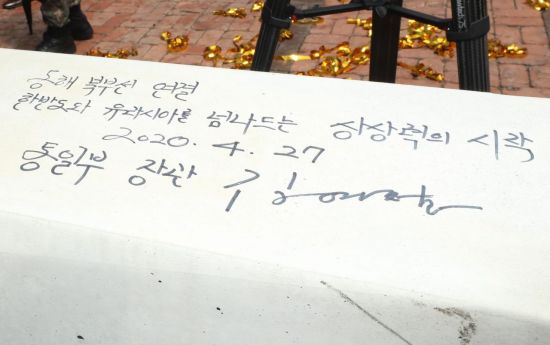 동해 북부선 연결
한반도와 유라시아를 넘나드는 상상력의 시작
2020. 4. 27
통일부 장관 김연철